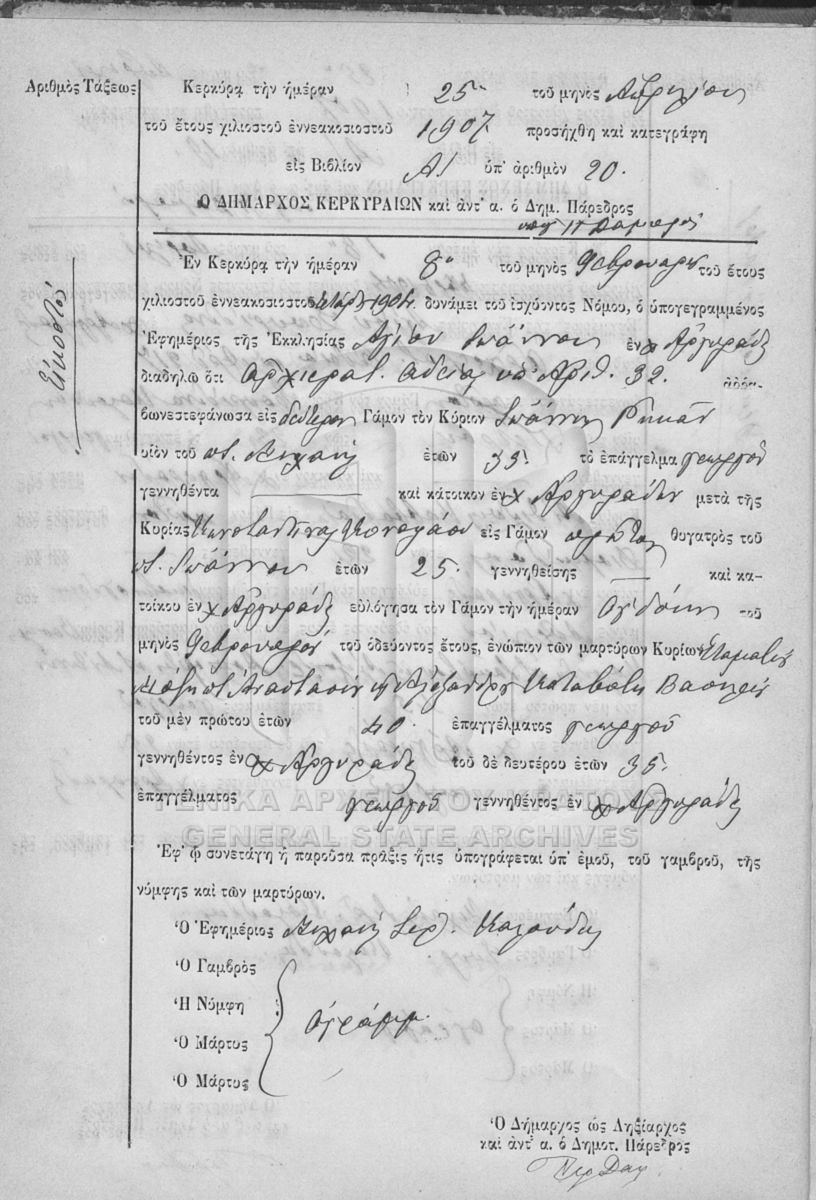 Ἀριθμὸς Τάξεως
Εἰκοστὸς
Κερκύρᾳ τὴν ἡμέραν 25 τοῦ μηνὸς Ἀπριλίου
τοῦ ἔτους χιλιοστοῦ ἐννεακοσιοστοῦ 1907 προσήχθη καὶ κατεγράφη
εἰς Βιβλίον Α/ ὑπ' ἀριθμὸν 20.
Ὁ ΔΗΜΑΡΧΟΣ ΚΕΡΚΥΡΑΙΩΝ καὶ ἀντ' α. ὁ Δημ. Πάρεδρος
Ἐν Κερκύρᾳ τὴν ἡμέραν 8 τοῦ μηνὸς Φεβρουαρίου τοῦ ἔτους
χιλιοστοῦ ἐννεακοσιοστοῦ 1904. δυνάμει τοῦ ἰσχύοντος Νόμου, ὁ ὑπογεγραμμένος
Ἐφημέριος τῆς Ἐκκλησίας Ἁγίου Ἰωάννου ἐν χ Ἀργυράδες
διαδηλῶ ὅτι ἀρχιερατ. ἀδείας ὑπ' Ἀριθ. 32. ἀῤῥα-
βωνεστεφάνωσα εἰς δεύτερον Γάμον τὸν Κύριον Ἰωάννην
υἱὸν τοῦ π. Μιχαὴλ ἐτῶν 35. τὸ ἐπάγγελμα γεωργοῦ
γεννηθέντα — καὶ κάτοικον ἐν χ Ἀργυράδων μετὰ τῆς
Κυρίας Κωνσταντίνας εἰς Γάμον πρῶτον θυγατρὸς τοῦ
π. Ἰωάννου ἐτῶν 25. γεννηθείσης — καὶ κα-
τοίκου ἐν χ Ἀργυράδες εὐλόγησα τὸν Γάμον τὴν ἡμέραν ὀγδόην τοῦ
μηνὸς Φεβρουαρίου τοῦ ὁδεύοντος ἔτους, ἐνώπιον τῶν μαρτύρων Κυρίων Σταματίου
π. Ἀναστασίου Ἀλεξάνδρου Καταβάτη Βασιλείου
τοῦ μὲν πρώτου ἐτῶν 40. ἐπαγγέλματος γεωργοῦ
γεννηθέντος ἐν χ Ἀργυράδες τοῦ δὲ δευτέρου ἐτῶν 35.
ἐπαγγέλματος γεωργοῦ γεννηθέντος ἐν χ Ἀργυράδες
ΓΕΝΙΚΑ ΑΡΧΕΙΑ ΤΟΥ ΚΡΑΤΟΥΣ
GENERAL STATE ARCHIVES
Ἐφ' ᾧ συνετάγη ἡ παροῦσα πρᾶξις ἥτις ὑπογράφεται ὑπ' ἐμοῦ, τοῦ γαμβροῦ, τῆς
νύμφης καὶ τῶν μαρτύρων.
Ὁ Ἐφημέριος Μιχαὴλ Ἱερ. Καλούδης
Ὁ Γαμβρὸς
Ἡ Νύμφη
ἀγράμμ.
Ὁ Μάρτυς
Ὁ Μάρτυς
Ὁ Δήμαρχος ὡς Ληξίαρχος
καὶ ἀντ' α. ὁ Δημοτ. Πάρεδρος